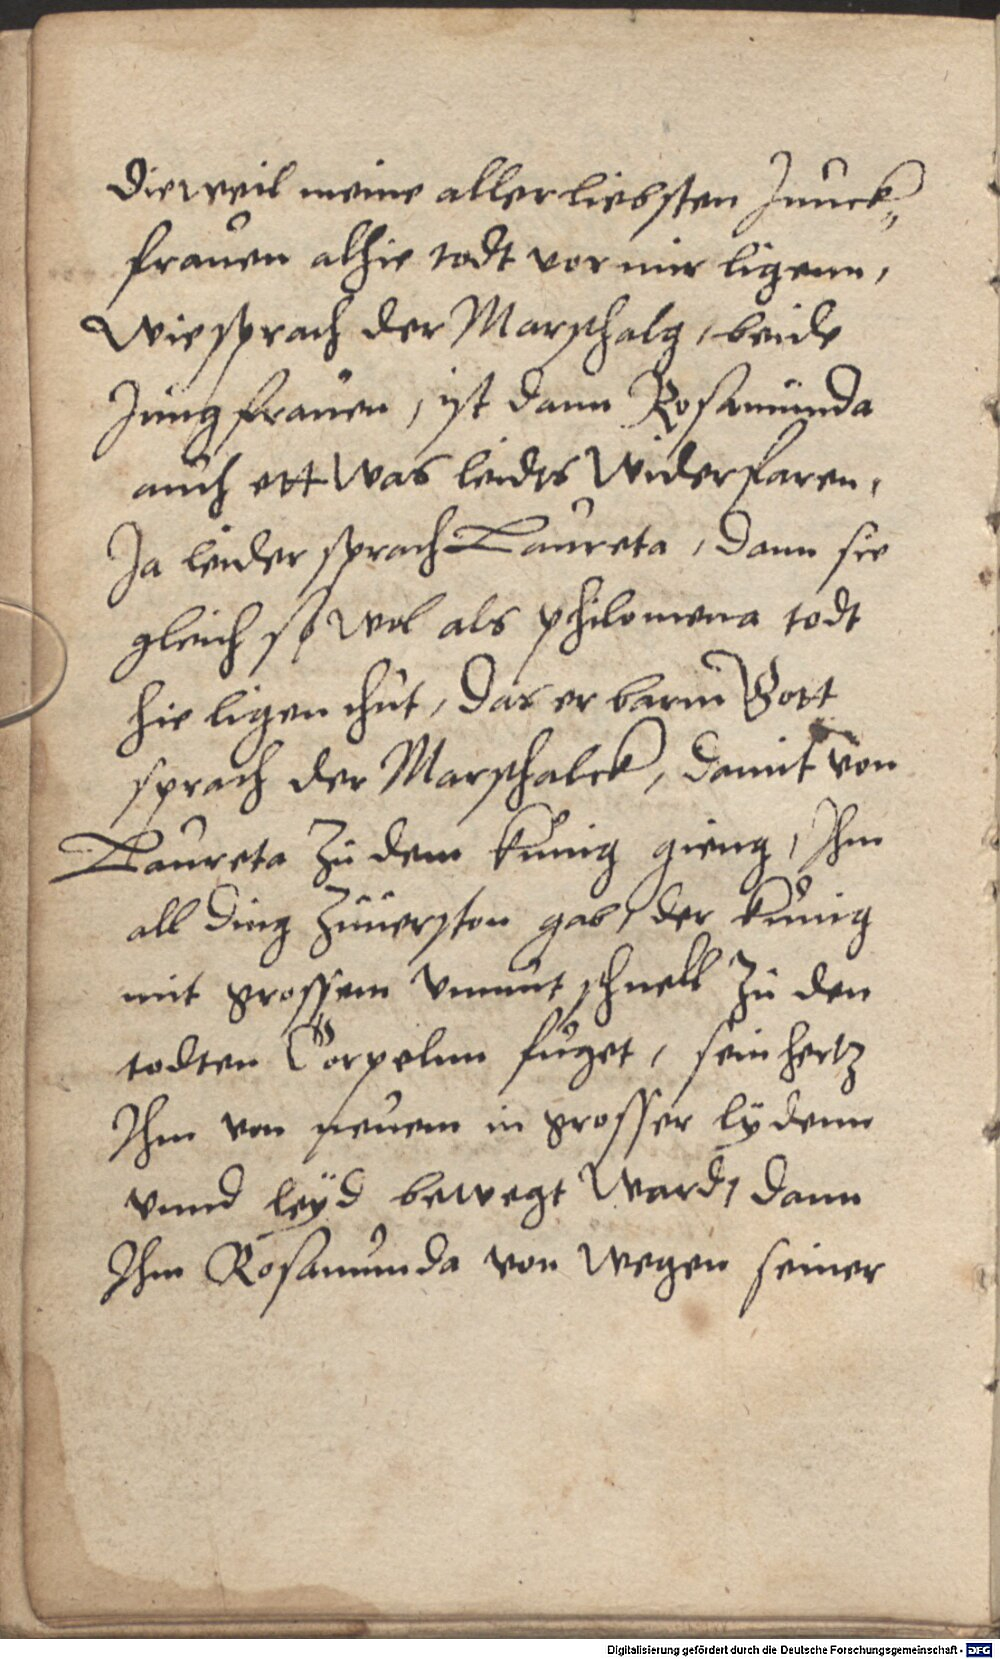 dieweil meine allerliebsten Junck„
frauen alhie todt vor mir ligenn,
Wie sprach der Marschalg, beide
Jungfrauen, ist dann Rosamunda
auch ettwas leidts widerfaren,
Ja leider sprach Laureta, dann sie
gleich so wol als philomena todt
hie ligen thut, das erbarm Gott
sprach der Marschalck, damit von
Laureta zu dem kunig gieng, Ihm
all ding zuuerston gab, der kunig
mit grossem vnmut schnell zu den
todten Corpelnn fuget, sein hertz
Ihm von neuem in grosser lydenn
vnnd leyd bewegt ward, dann
Ihm Rosamunda von wegen seiner
Digitalisierung gefördert durch die Deutsche Forschungsgemeinschaft - DFG